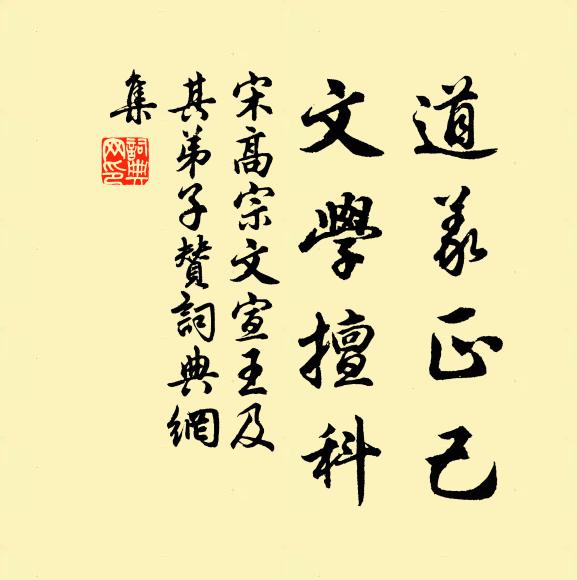 道義正己
文學擅科
宋高宗文宣王及
其弟子賛詞典網
集
詞典
网印